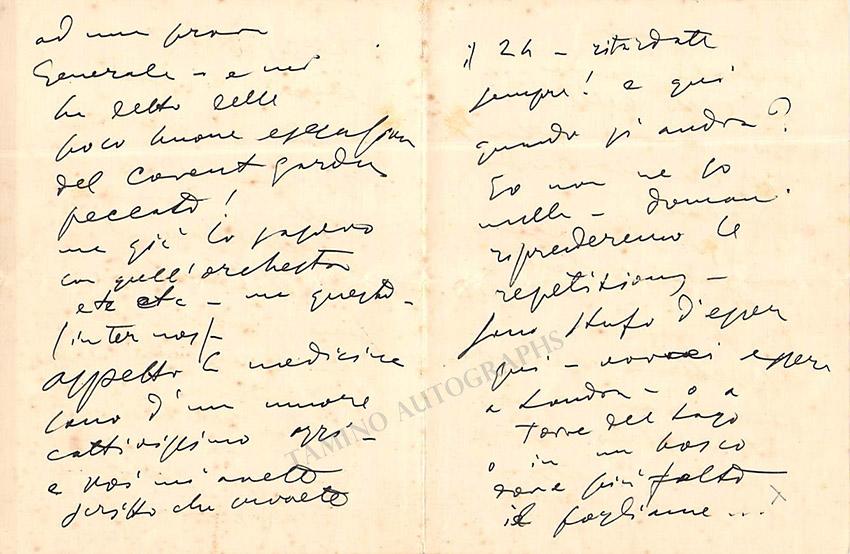 ad una prova
Generale - e mi
ha detto della
poco buone
del Covent Garden
peccato!
ma già lo sapevo
con quell'orchestra
etc etc - ma questo -
(inter nos)-
aspetto le medicine
sono d'un umore
cattivissimo oggi -
e voi mi avete
scritto che avrete
il 24 - ritardate
sempre! e qui
quando si andrà?
Io non ne so
nulla - domani
riprenderemo le
repetitions -
sono stufo d'esser
qui - vorrei essere
a London - o a
Torre del Lago
o in un bosco
dove più folto
il fogliame ...
TAMINO AUTOGRAPHS